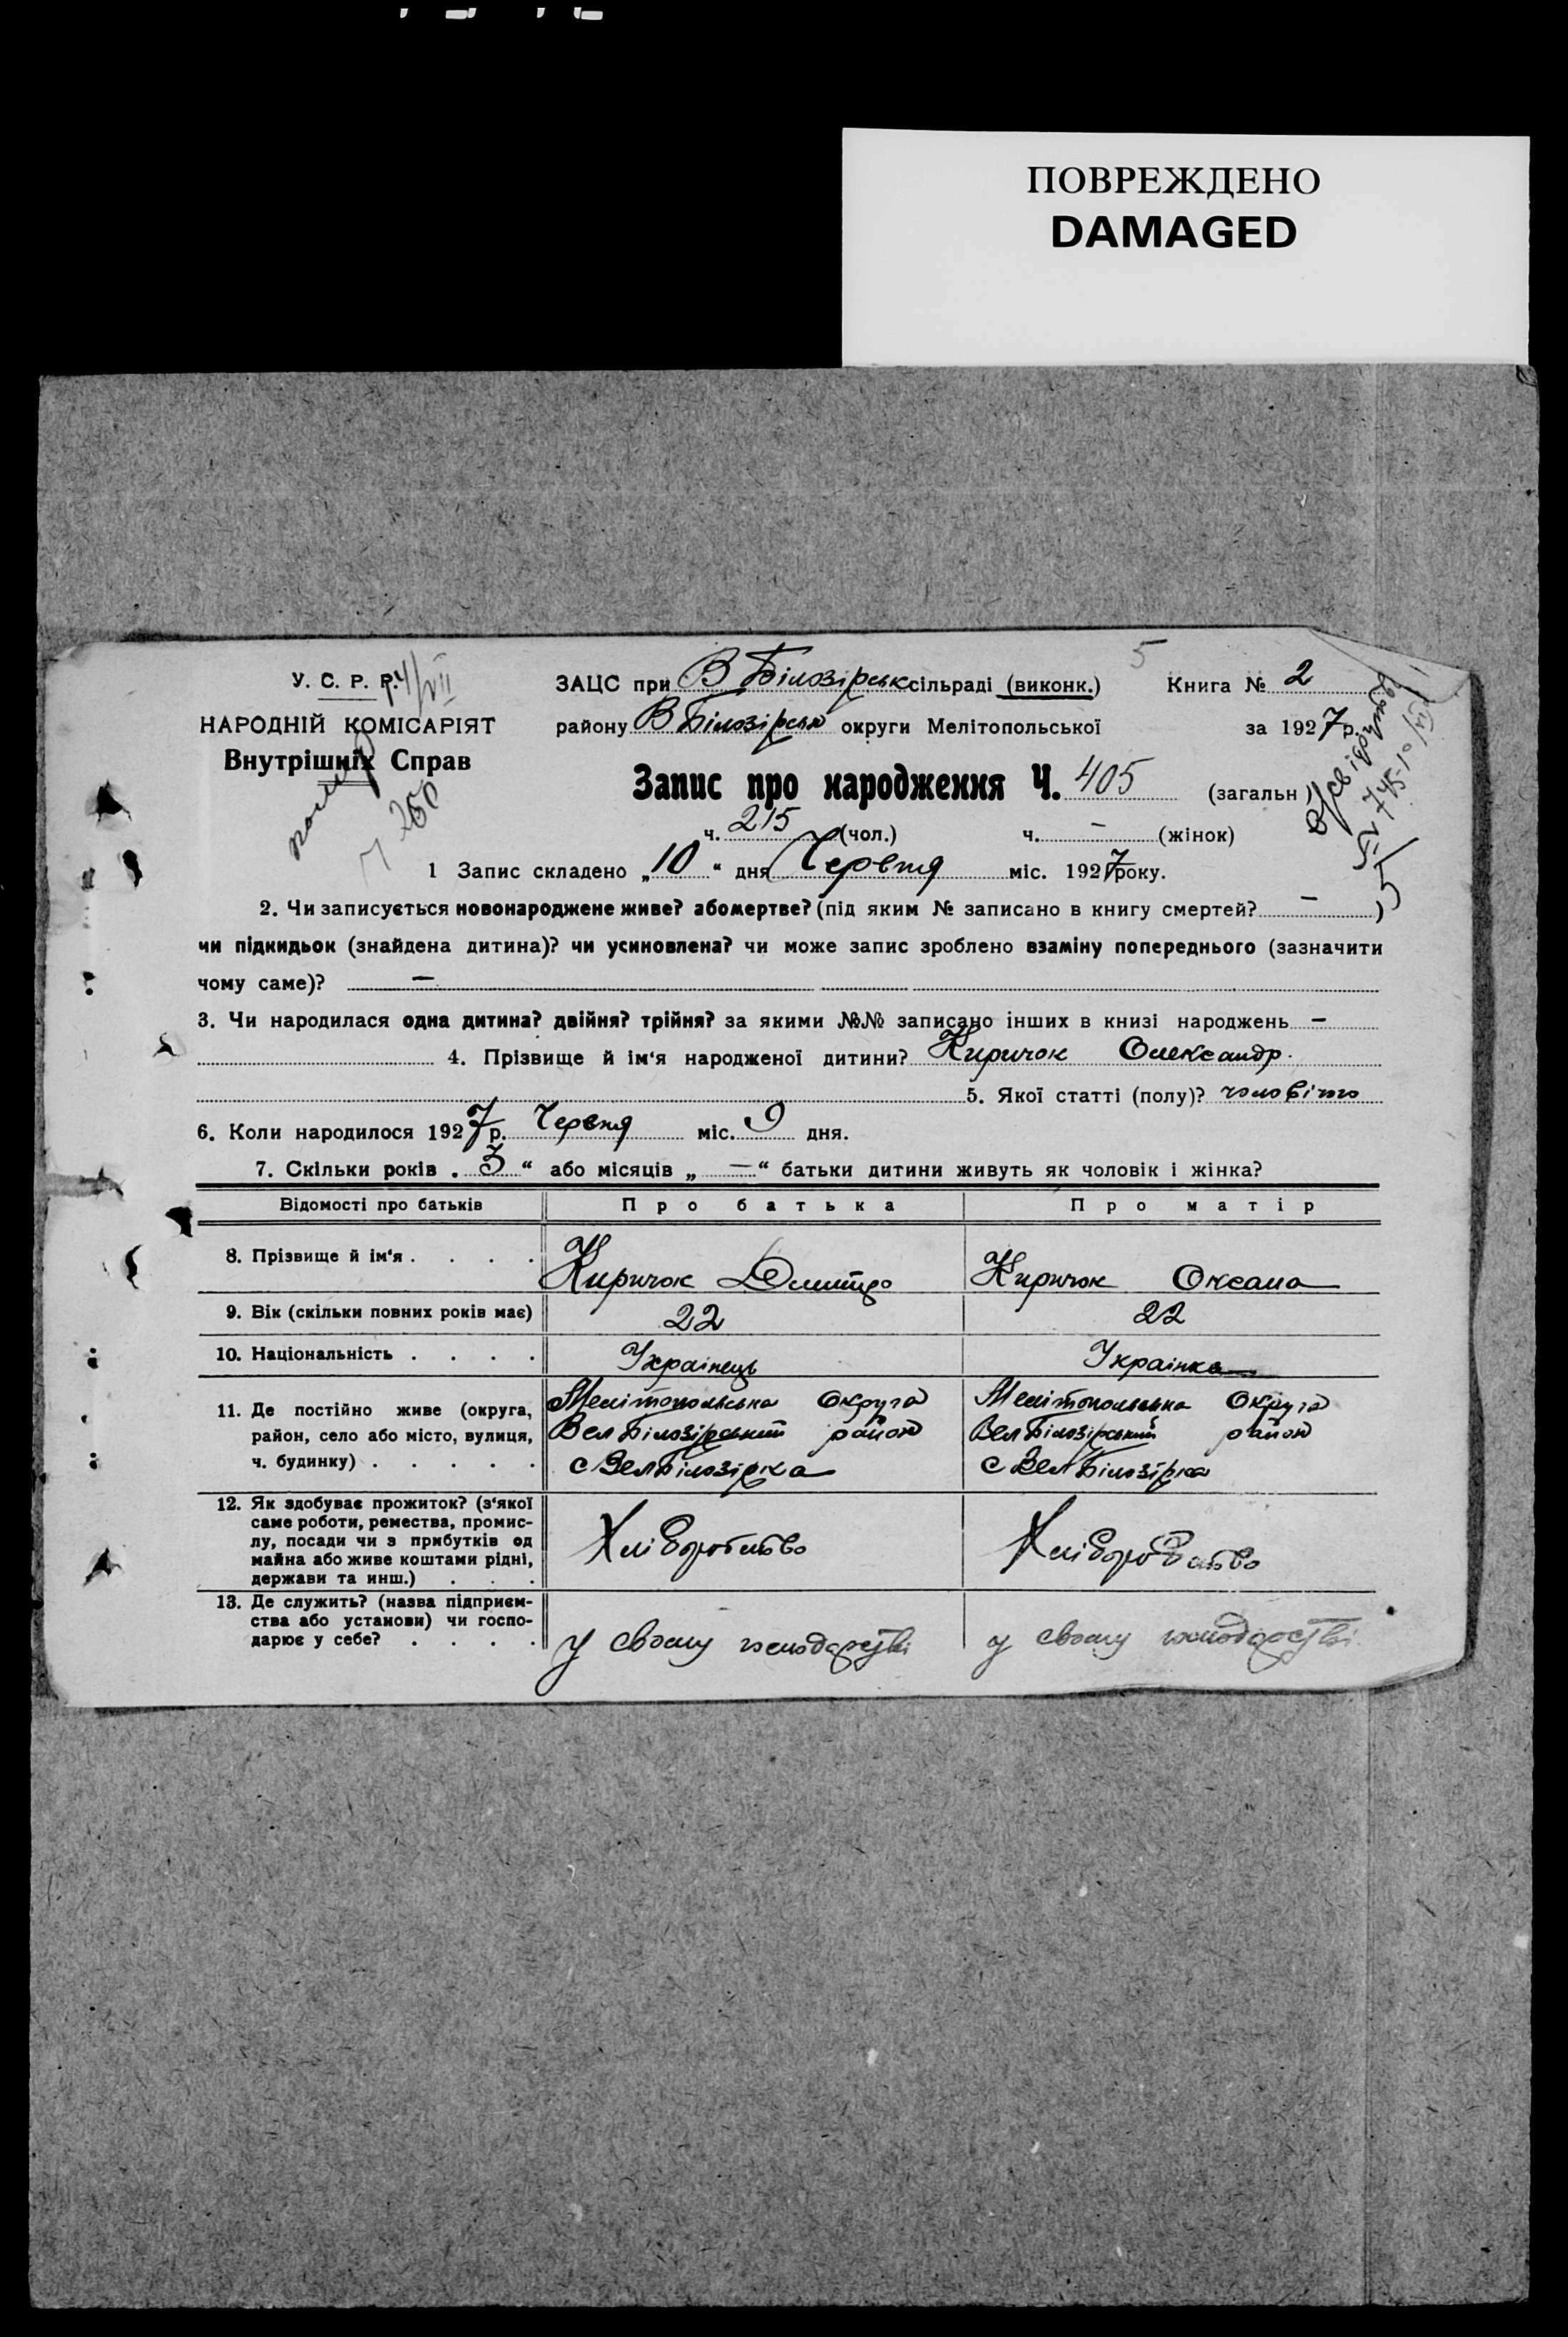 ПОВРЕЖДЕНО
DAMAGED
5
У. С. Р. Р.
НАРОДНІЙ КОМІСАРІЯТ
Внутрішніх Справ
помер
260
ЗАЦС при В Білозірськ сільраді (виконк.) Книга № 2
району В Білозірськ округи Мелітопольської за 1927 р.
Запис про народження Ч. 405 (загальн)
ч. 215 (чол.) ч. – (жінок)
1 Запис складено „10“ дня Червня міс. 1927 року.
2. Чи записується новонароджене живе? або мертве? (під яким № записано в книгу смертей? – )
чи підкидьок (знайдена дитина)? чи усиновлена? чи може запис зроблено взаміну попереднього (зазначити
чому саме)? –
3. Чи народилася одна дитина? двійня? трійня? за якими №№ записано інших в книзі народжень –
4. Прізвище й ім‘я народженої дитини? Киричок Олександр.
5. Якої статті (полу)? чоловічого
6. Коли народилося 1927 р. Червня міс. 9 дня.
7. Скільки років „ 3 “ або місяців „ — “ батьки дитини живуть як чоловік і жінка?
Відомості про батьків Про батька Про матір
8. Прізвище й ім‘я . . . . Киричок Дмитро Киричок Оксана
9. Вік (скільки повних років має) 22 22
10. Національність . . . . Українець Українка
11. Де постійно живе (округа, Мелітопольська округа Мелітопольська Округа
район, село або місто, вулиця, Вел Білозірський район Вел Білозірський район
ч. будинку) . . . . . с Вел Білозірка с Вел Білозірка
12. Як здобуває прожиток? (з‘якої
саме роботи, ремества, промис-
лу, посади чи з прибутків од
майна або живе коштами рідні,
держави та инш.) . . .
Хліборобство Хліборобство
13. Де служить? (назва підприєм-
ства або установи) чи госпо-
дарює у себе? . . . .
у своему господарстві у своему господарстві